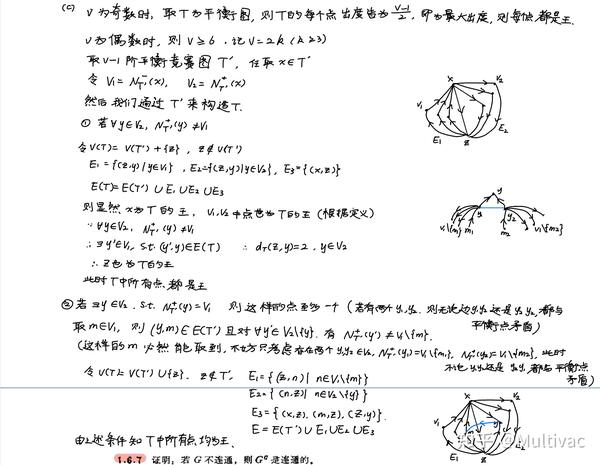 (c) v为奇数时, 取T为平衡图, 则T的每个点出度皆为 (v-1)/2, 即为最大出度, 则每个点都是王.
v为偶数时, 则 v≥6. 记 v=2k (k≥3)
取v-1阶平衡竞赛图T', 任取 x∈T'
令 V₁=N⁻T'(x), V₂=N⁺T'(x)
然后我们通过T'来构造T.
① 若∀y∈V₂, N⁺T'(y)≠V₁
令V(T)=V(T')+{z}, z∉V(T')
E₁={(z,y)|y∈V₁}, E₂={(z,y)|y∈V₂}, E₃={(x,z)}
E(T)=E(T')∪E₁∪E₂∪E₃
则显然 x为T的王, V₁,V₂中点也为T的王 (根据定义)
∵∀y∈V₂, N⁺T'(y)≠V₁
∴∃y'∈V₁, s.t. (y',y)∈E(T) ∴ d_T(z,y)=2, y∈V₂
∴ z也为T的王
此时T中所有点都是王
② 若∃y∈V₂, s.t. N⁺T'(y)=V₁ 则这样的点至多一个 (若有两个y₁,y₂, 则无论边y₁y₂还是y₂y₁都与
平衡点矛盾)
取m∈V₁, 则 (y,m)∈E(T') 且对∀y'∈V₂\{y}, 有 N⁺T'(y')≠V₁\{m}.
(这样的m必然能取到, 不妨只考虑存在两个y₁,y₂∈V₂, N⁺T'(y₁)=V₁\{m₁}, N⁺T'(y₂)=V₁\{m₂}, 此时
不论y₁y₂还是y₂y₁都与平衡点
矛盾)
令V(T)=V(T')∪{z}, z∉T', E₁={(z,n)|n∈V₁\{m}}
E₂={(n,z)|n∈V₂\{y}}
E₃={(x,z),(m,z),(z,y)}
E=E(T')∪E₁∪E₂∪E₃
由上述条件知T中所有点均为王.
1.6.7 证明: 若 G 不连通, 则 Gᶜ 是连通的.
x
V₁
V₂
E₁
E₂
z
y
y₁
y₂
V₁\{m₁}
m₁
m₂
V₁\{m₂}
x
V₂
V₁
m
y
E₁
z
知乎 @Multivac